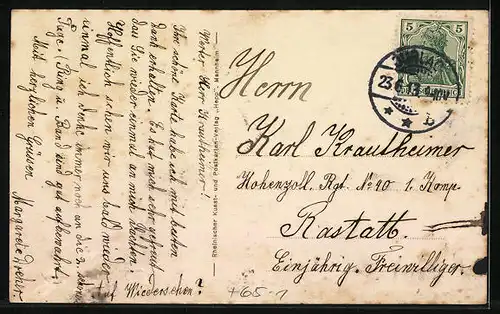 Werter Herr Krautheimer!
Ihre schöne Karte habe ich mit bestem
Dank erhalten. Es hat mich sehr gefreut
das Sie wieder einmal an mich dachten.
Hoffentlich sehen wir uns bald wieder
einmal ich denke immer noch an die
Tage. Ring u. Band sind gut aufbewahrt.
Mit herzlichen Grüssen
Margarete
Auf Wiedersehen?
Rheinischer Kunst- und Postkarten-Verlag Mannheim
Herrn
Karl Krautheimer
Hohenzoll. Rgt. No 40 1. Komp.
Rastatt.
Einjährig-Freiwilliger.
5 5
23
b
+65-1